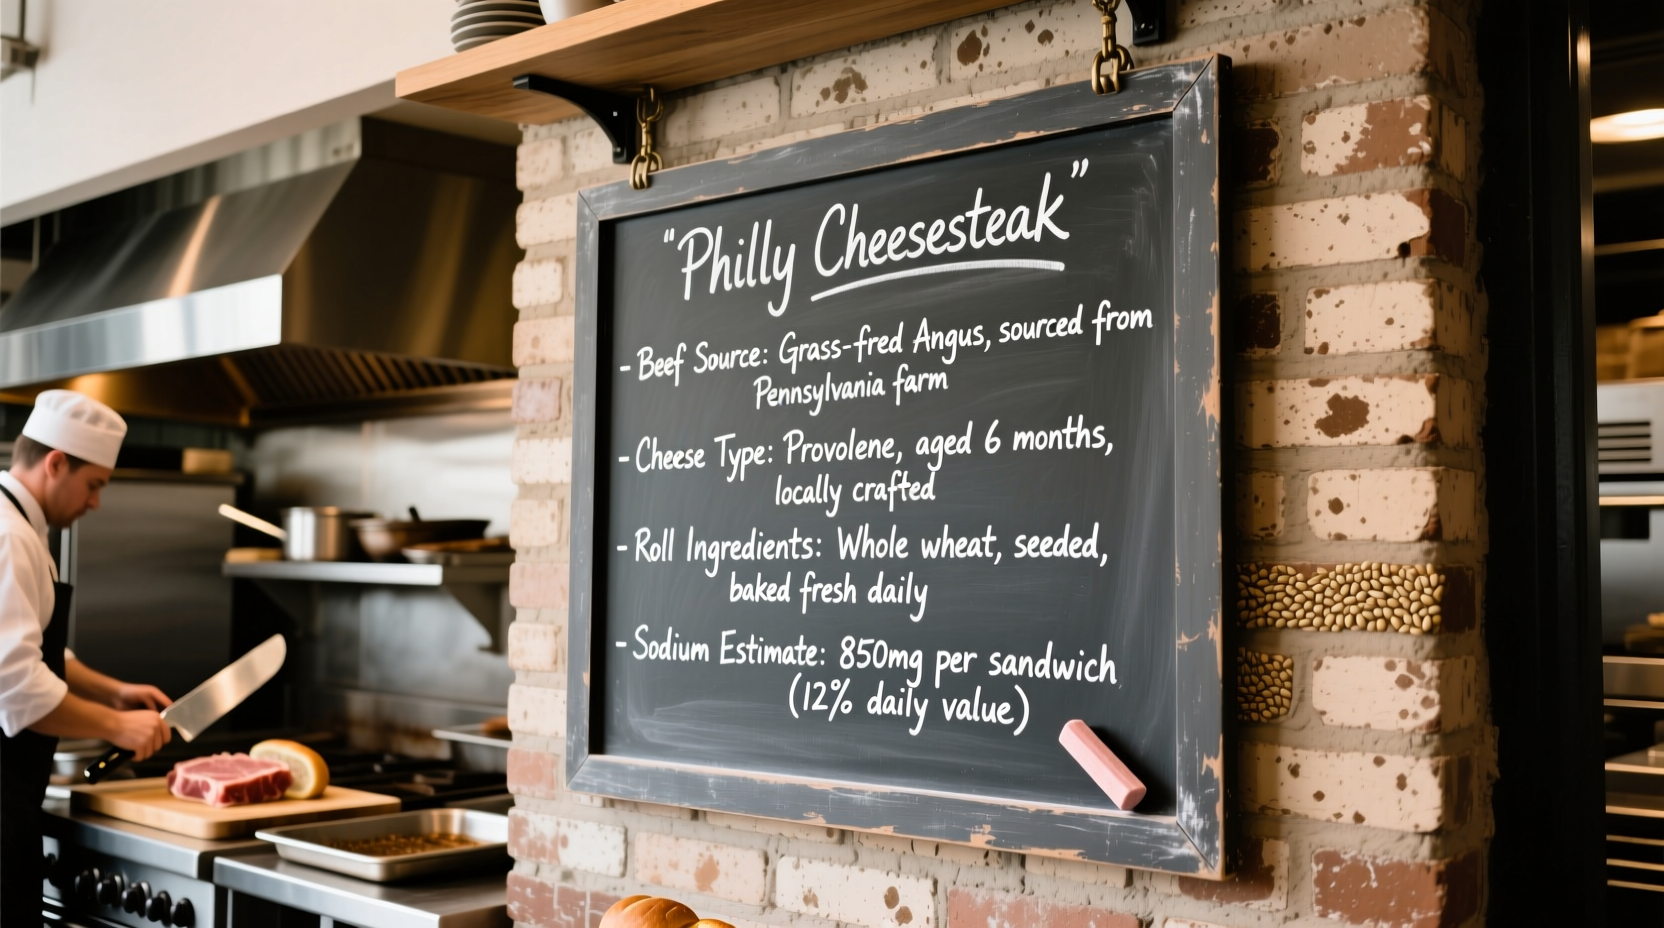 "Philly Cheesesteak"
- Beef Source: Grass-fred Angus, sourced from
Pennsylvania farm
- Cheese Type: Provolene, aged 6 months,
locally crafted
- Roll Ingredients: Whole wheat, seeded,
baked fresh daily
- Sodium Estimate: 850mg per sandwich
(12% daily value)